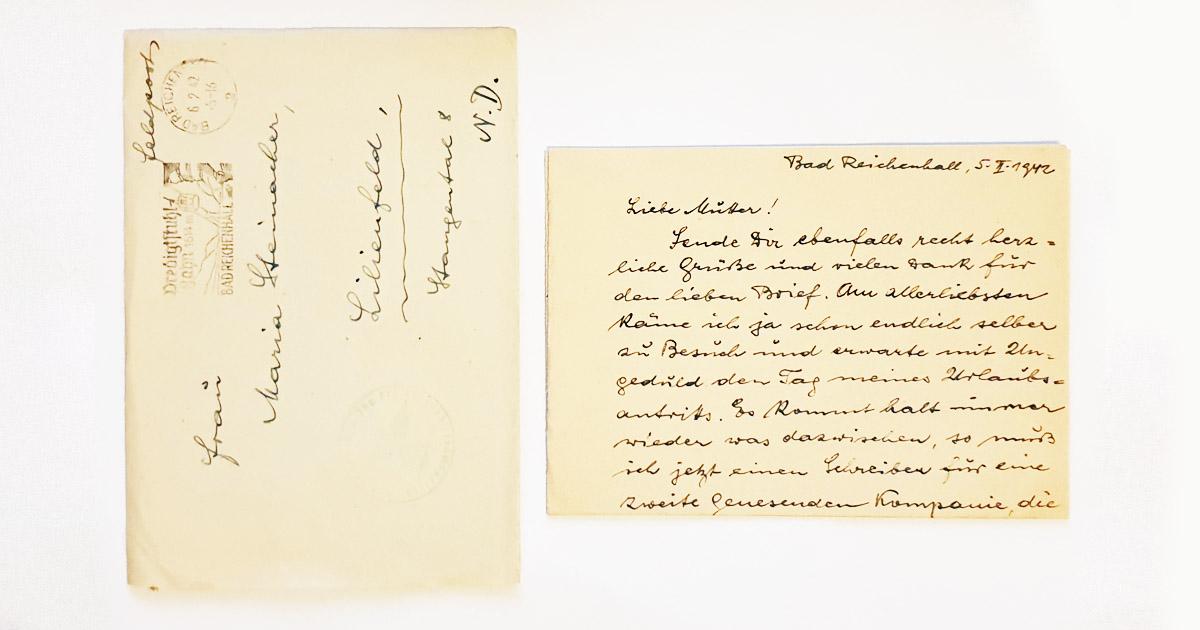 Feldpost
BAD REICHENHALL
6 2 42
Predigtstuhl
Bahn 1614 m
BAD REICHENHALL
Frau
Maria Steinacher,
Lilienfeld,
Stangental 8
N. D.
Bad Reichenhall, 5. II. 1942
Liebe Mutter!
Sende Dir ebenfalls recht herz=
liche Grüße und vielen Dank für
den lieben Brief. Am allerliebsten
käme ich ja schon endlich selber
zu Besuch und erwarte mit Un=
geduld den Tag meines Urlaubs=
antritts. Es kommt halt immer
wieder was dazwischen, so muß
ich jetzt einen Schreiber für eine
zweite Genesenden Kompanie, die